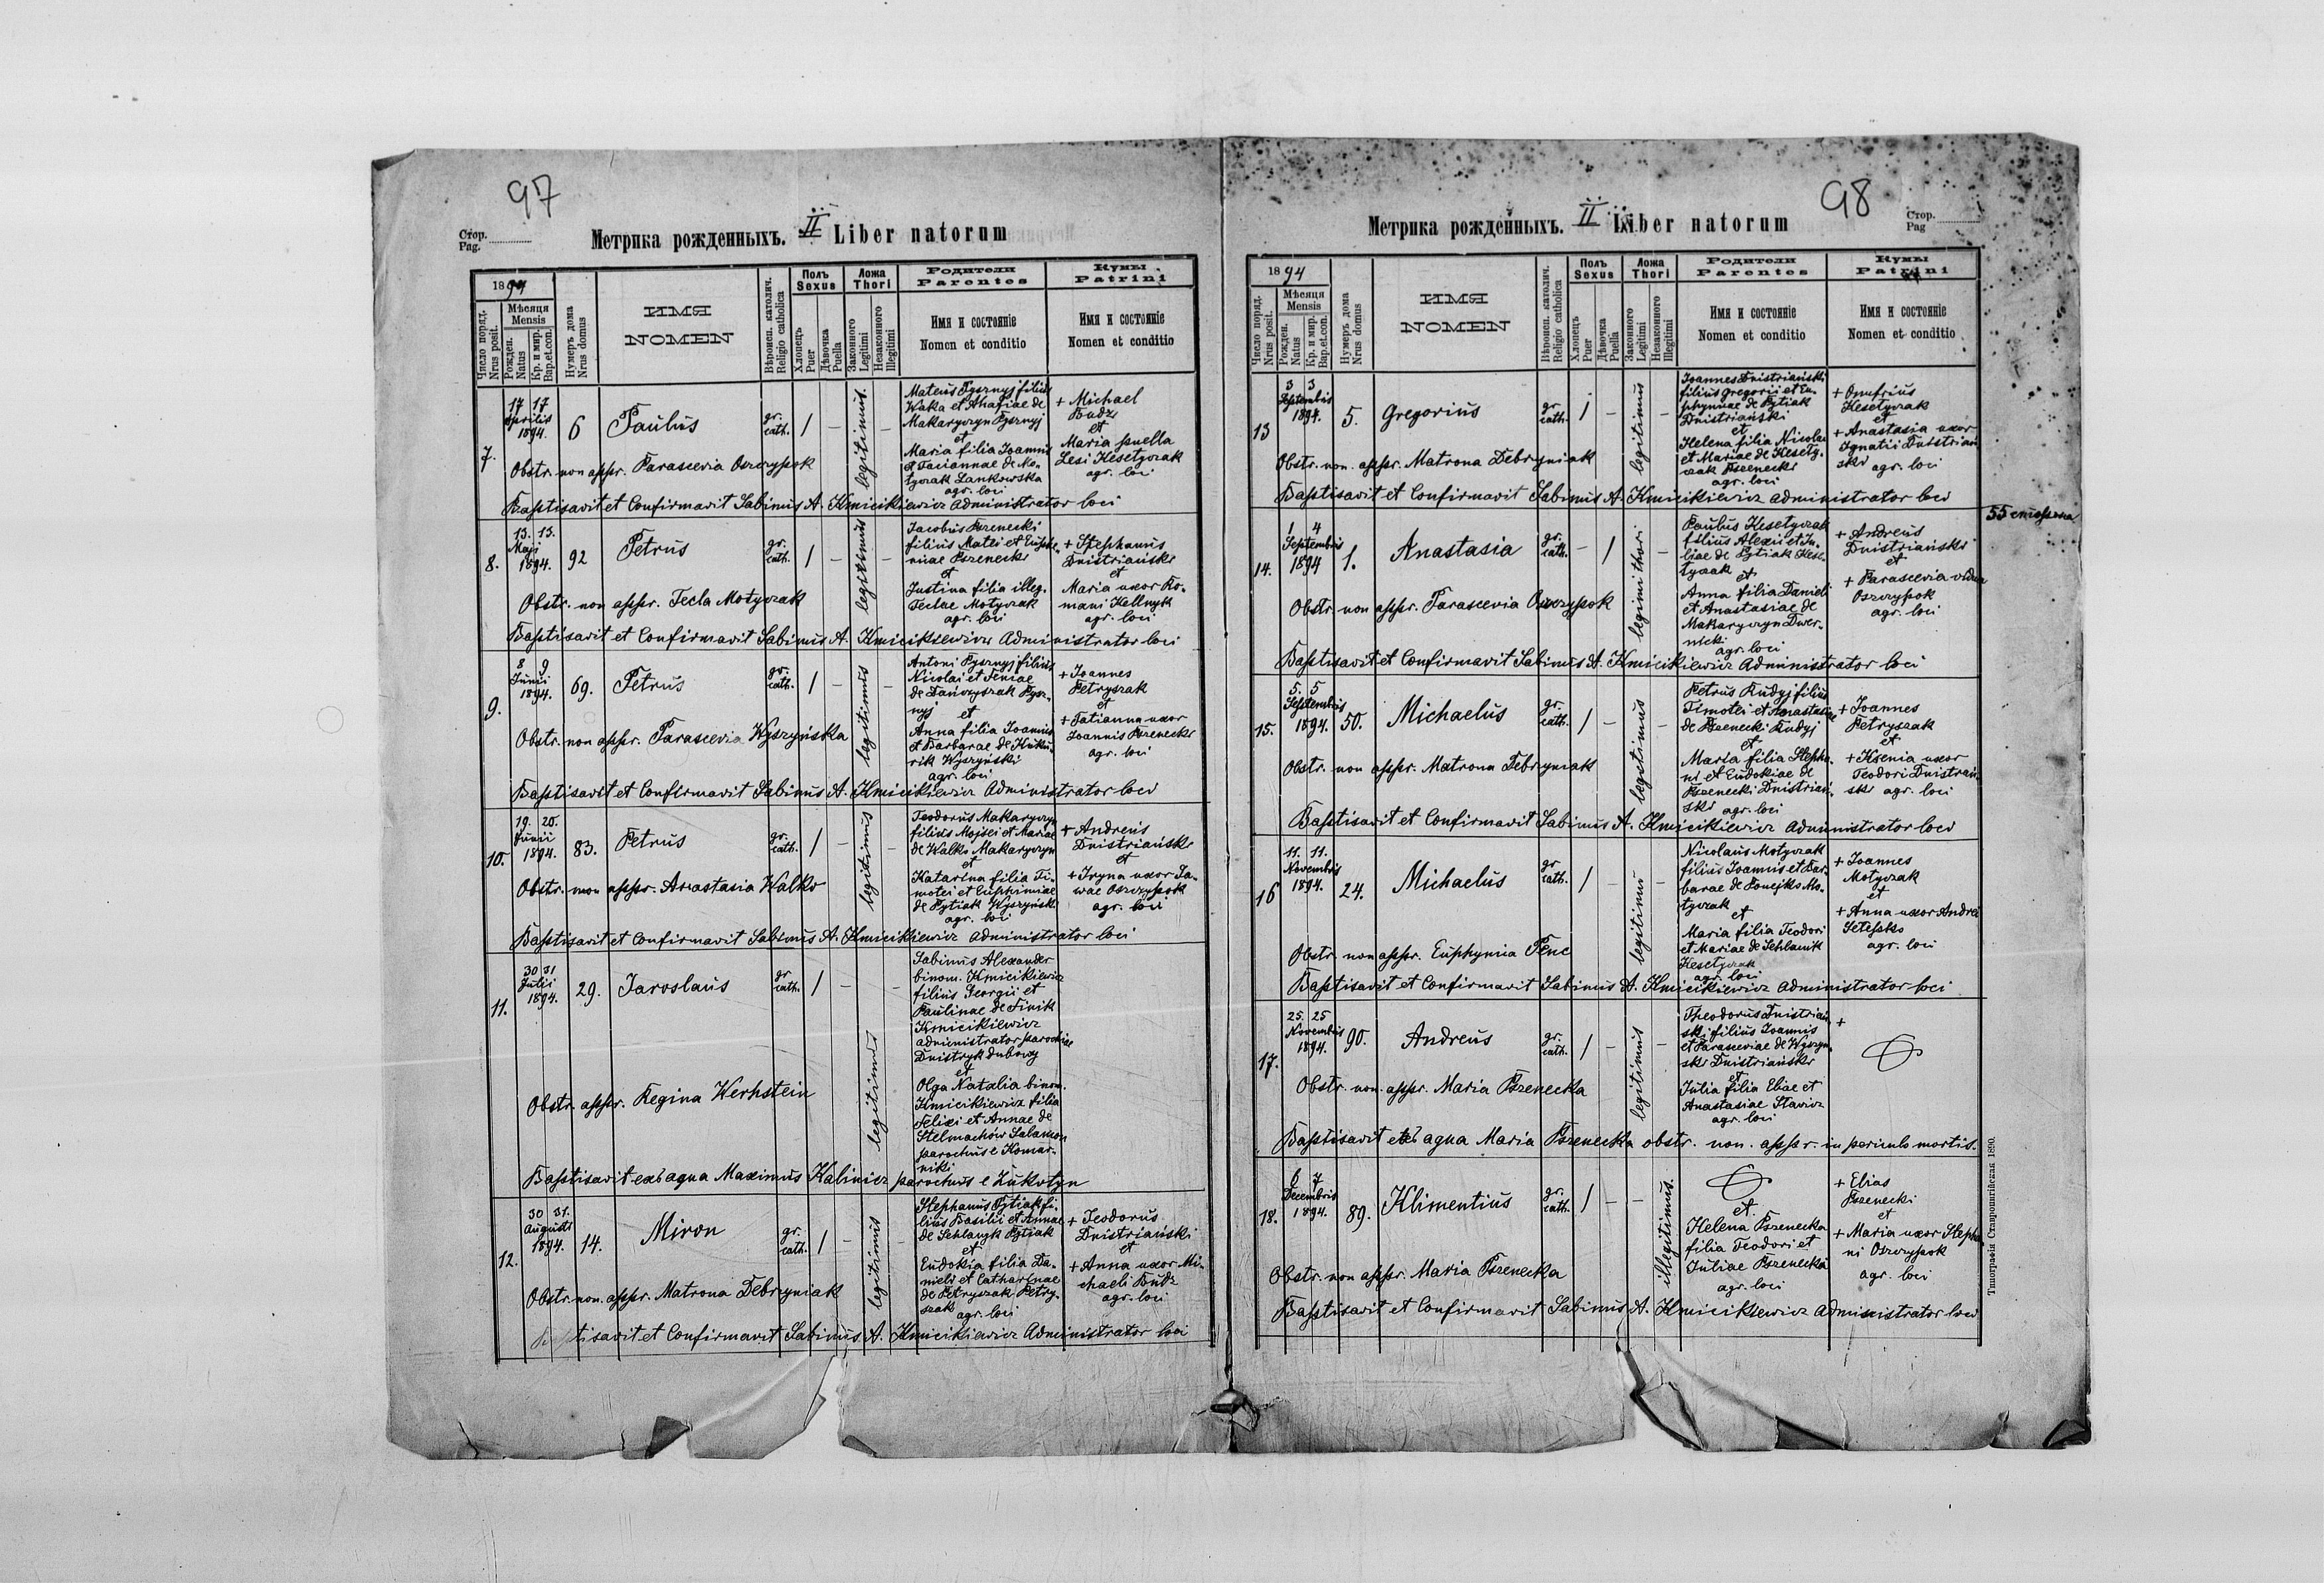 97
Стор.
Pag.
Метрика рожденныхъ. II Liber natorum
1894
Число поряд.
Nrus posit.
Мѣсяця
Mensis
Рожден.
Natus
Кр. и мир.
Bap.et.con.
Нумеръ дома
Nrus domus
ИМЯ
NOMEN
Вѣроисп. католич.
Religio catholica
Полъ
Sexus
Хлопецъ
Puer
Дѣвочка
Puella
Ложа
Thori
Законного
Legitimi
Незаконного
Illegitimi
Родители
Parentes
Имя и состояніе
Nomen et conditio
Кумы
Patrini
Имя и состояніе
Nomen et conditio
7.
17 17
Aprilis
1894.
6
Paulus
gr.
cath.
/ –
legitimus.
–
Mateus Pysznyj filius
Waka et Ahafiae de
Makaryczyn Pysznyj
et
Maria filia Joannis
et Taciannae de Mo-
tyczak Lankowska
agr. loci
+ Michael
Budz
et
Maria puella
Lesi Kesetyczak
agr. loci
Obstr. non appr. Parascevia Oszczypok
Baptisavit et Confirmavit Sabinus A. Kmicikiewicz Administrator loci
8.
13. 13.
Maji
1894.
92
Petrus
gr.
cath.
/ –
legitimus
–
Jacobus Pszenecki
filius Matei et Euphe-
miae Pszenecki
et
Justina filia illeg.
Teclae Motyczak
agr. loci
+ Stephanus
Dnistriański
et
Maria uxor Ro-
mani Hellnyk
agr. loci
Obstr. non appr. Tecla Motyczak
Baptisavit et Confirmavit Sabinus A. Kmicikiewicz Administrator loci
9.
8 9
Junii
1894.
69.
Petrus
gr.
cath.
/ –
legitimus
–
Antoni Pysznyj filius
Nicolai et Feniae
de Dańczyszak Pysz-
nyj et
Anna filia Joannis
et Barbarae de Kuku-
rik Wyszyński
agr. loci
+ Joannes
Petryszak
et
+ Tatianna uxor
Joannis Pszenecki
agr. loci
Obstr. non appr. Parascevia Wyszyńska
Baptisavit et Confirmavit Sabinus A. Kmicikiewicz Administrator loci
10.
19. 20.
Junii
1894.
83.
Petrus
gr.
cath.
/ –
legitimus
–
Teodorus Makaryczyn
filius Mojsei et Mariae
de Walko Makaryczyn
et
Katarina filia Ti-
motei et Euphimiae
de Pytiak Wyszyński
agr. loci
+ Andreus
Dnistriański
et
+ Iryna uxor Ja-
wae Oszczypok
agr. loci
Obstr. non appr. Anastasia Walko
Baptisavit et Confirmavit Sabinus A. Kmicikiewicz Administrator loci
11.
30 31
Julii
1894.
29.
Jaroslaus
gr
cath.
/ –
legitimus
–
Sabinus Alexander
binom. Kmicikiewicz
filius Georgii et
Paulinae de Finik
Kmicikiewicz
administrator parochiae
Dnistryk dubowy
et
Olga Natalia binom.
Kmicikiewicz filia
Felixi et Annae de
Stelmachów Salamon
parochus e Komar-
niki
Obstr. appr. Regina Werhstein
Baptisavit ex aqua Maximus Kaliniez parochus e Łukotyn
12.
30 31.
Augusti
1894.
14.
Miron
gr.
cath.
/ –
legitimus
–
Stephanus Pytiak fi-
lius Basilii et Annae
de Sehlanyk Pytiak
et
Eudokia filia Da-
nieli et Catharinae
de Petryszak Petry-
szak
agr. loci
+ Teodorus
Dnistriański
et
+ Anna uxor Mi-
chaeli Budz
agr. loci
Obstr. non. appr. Matrona Debryniak
Baptisavit et Confirmavit Sabinus A. Kmicikiewicz Administrator loci
98
Стор.
Pag
Метрика рожденныхъ. II Liber natorum
1894
Число поряд.
Nrus posit.
Мѣсяця
Mensis
Рожден.
Natus
Кр. и мир.
Bap.et.con.
Нумеръ дома
Nrus domus
ИМЯ
NOMEN
Вѣроисп. католич.
Religio catholica
Полъ
Sexus
Хлопецъ
Puer
Дѣвочка
Puella
Ложа
Thori
Законного
Legitimi
Незаконного
Illegitimi
Родители
Parentes
Имя и состояніе
Nomen et conditio
Кумы
Patrini
Имя и состояніе
Nomen et conditio
13
3 3
Septembis
1894.
5.
Gregorius
gr
cath.
/ –
legitimus
–
Joannes Dnistriański
filius Gregorii et Eu-
phymiae de Pytiak
Dnistriański
et
Helena filia Nicolai
et Mariae de Kesety-
czak Pszenecki
agr. loci
+ Onufrius
Kesetyczak
et
+ Anastasia uxor
Ignatii Dnistriań-
ski agr. loci
Obstr. non. appr. Matrona Debryniak
Baptisavit et Confirmavit Sabinus A. Kmicikiewicz administrator loci
14.
1 4
Septembris
1894
1.
Anastasia
gr.
cath.
– /
legimi thori
–
Paulus Kesetyczak
filius Alexii et Ju-
liae de Pytiak Kese-
tyczak
et
Anna filia Danieli
et Anastasiae de
Makaryczyn Dwer-
nicki
agr. loci
+ Andreus
Dnistriański
et
+ Parascevia vidua
Oszczypok
agr. loci
Obstr. non appr. Parascevia Oszczypok
Baptisavit et Confirmavit Sabinus A. Kmicikiewicz Administrator loci
15.
5. 5
Septembris
1894.
50.
Michaelus
gr.
cath.
/ –
legitimus
–
Petrus Kudyj filius
Timotei et Anastasiae
de Pszenecki Kudyj
et
Maria filia Stepha-
ni et Eudokiae de
Pszenecki Dnistriań-
ski agr. loci
+ Joannes
Petryszak
et
+ Ksenia uxor
Teodori Dnistriań-
ski agr. loci
Obstr. non appr. Matrona Debryniak
Baptisavit et Confirmavit Sabinus A. Kmicikiewicz Administrator loci
16
11. 11.
Novembris
1894.
24.
Michaelus
gr
cath.
/ –
legitimus
–
Nicolaus Motyczak
filius Joannis et Bar-
barae de Ponejko Mo-
tyczak
et
Maria filia Teodori
et Mariae de Sehlanik
Kesetyczak
agr. loci
+ Joannes
Motyczak
et
+ Anna uxor Andrei
Setepko
agr. loci
Obstr. non appr. Euphymia Penc
Baptisavit et Confirmavit Sabinus A. Kmicikiewicz Administrator loci
17.
25. 25
Novembris
1894.
90.
Andreus
gr.
cath.
/ –
legitimus
–
Theodorus Dnistriań-
ski filius Joannis
et Parasceviae de Wyszyń-
ski Dnistriański
et
Julia filia Eliae et
Anastasiae Stawicz
agr. loci
+
Obstr. non. appr. Maria Pszenecka
Baptisavit ex aqua Maria Pszenecka obstr. non. appr. in periculo mortis.
18.
6 7
Decembris
1894.
89.
Klimentius
gr.
cath.
/ – –
illegitimus.
et.
Helena Pszenecka
filia Teodori et
Juliae Pszenecka
agr. loci
+ Elias
Pszenecki
et
+ Maria uxor Stepha-
ni Oszczypok
agr. loci
Obstr. non appr. Maria Pszenecka
Baptisavit et Confirmavit Sabinus A. Kmicikiewicz Administrator loci
55 сторона
Типографія Ставропигійская 1890.